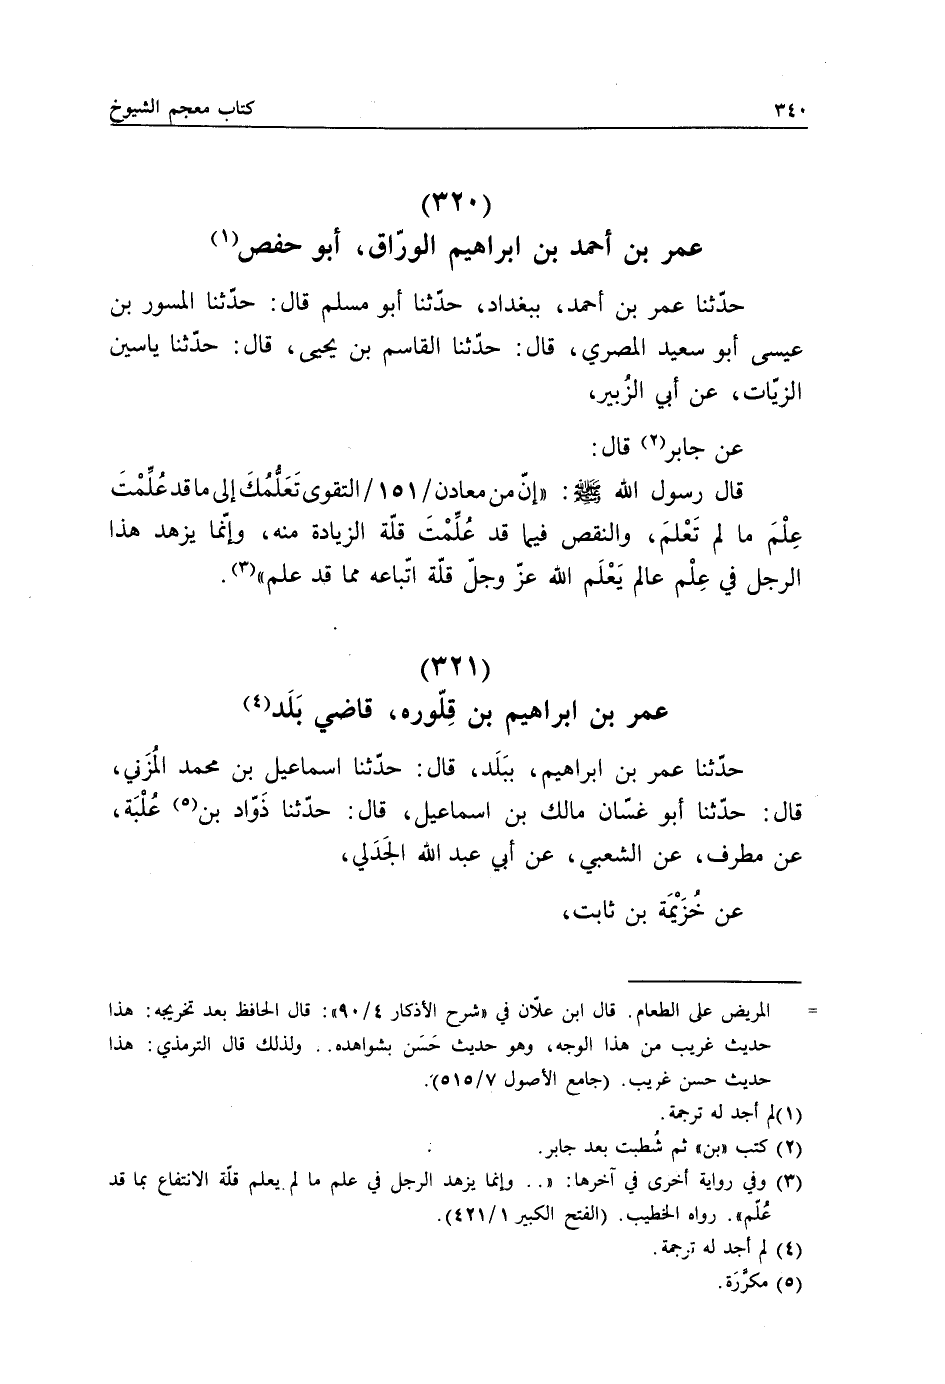 ٣٤٠ كتاب معجم الشيوخ
(٣٢٠)
عمر بن أحمد بن ابراهيم الورّاق، أبو حفص(١)
حدّثنا عمر بن أحمد، ببغداد، حدّثنا أبو مسلم قال: حدّثنا المسور بن
عيسى أبو سعيد المصري، قال: حدّثنا القاسم بن يحيى، قال: حدّثنا ياسين
الزيّات، عن أبي الزُبير،
عن جابر(٢) قال:
قال رسول الله ﷺ: «إنّ من معادن/١٥١/التقوى تَعَلُّمُكَ إلى ما قد عُلِّمْتَ
عِلْمَ ما لم تَعْلمَ، والنقص فيما قد عُلِّمْتَ قلّة الزيادة منه، وإنّما يزهد هذا
الرجل في عِلْم عالم يَعْلَم الله عزّ وجلّ قلّة اتّباعه مما قد علم»(٣).
(٣٢١)
عمر بن ابراهيم بن قِلّوره، قاضي بَلَد(٤)
حدّثنا عمر بن ابراهيم، ببَلَد، قال: حدّثنا اسماعيل بن محمد المُزَني،
قال: حدّثنا أبو غسّان مالك بن اسماعيل، قال: حدّثنا ذَوّاد بن(٥) عُلْبَة،
عن مطرف، عن الشعبي، عن أبي عبد الله الجَدَلي،
عن خُزَيْمَة بن ثابت،
= المريض على الطعام. قال ابن علّان في «شرح الأذكار ٩٠/٤»: قال الحافظ بعد تخريجه: هذا
حديث غريب من هذا الوجه، وهو حديث حَسَن بشواهده.. ولذلك قال الترمذي: هذا
حديث حسن غريب. (جامع الأصول ٥١٥/٧).
(١) لم أجد له ترجمة.
(٢) كتب «بن» ثم شُطبت بعد جابر.
(٣) وفي رواية أخرى في آخرها: «.. وإنما يزهد الرجل في علم ما لم يعلم قلّة الانتفاع بما قد
عُلّم». رواه الخطيب. (الفتح الكبير ٤٢١/١).
(٤) لم أجد له ترجمة.
(٥) مكرَّرَة.